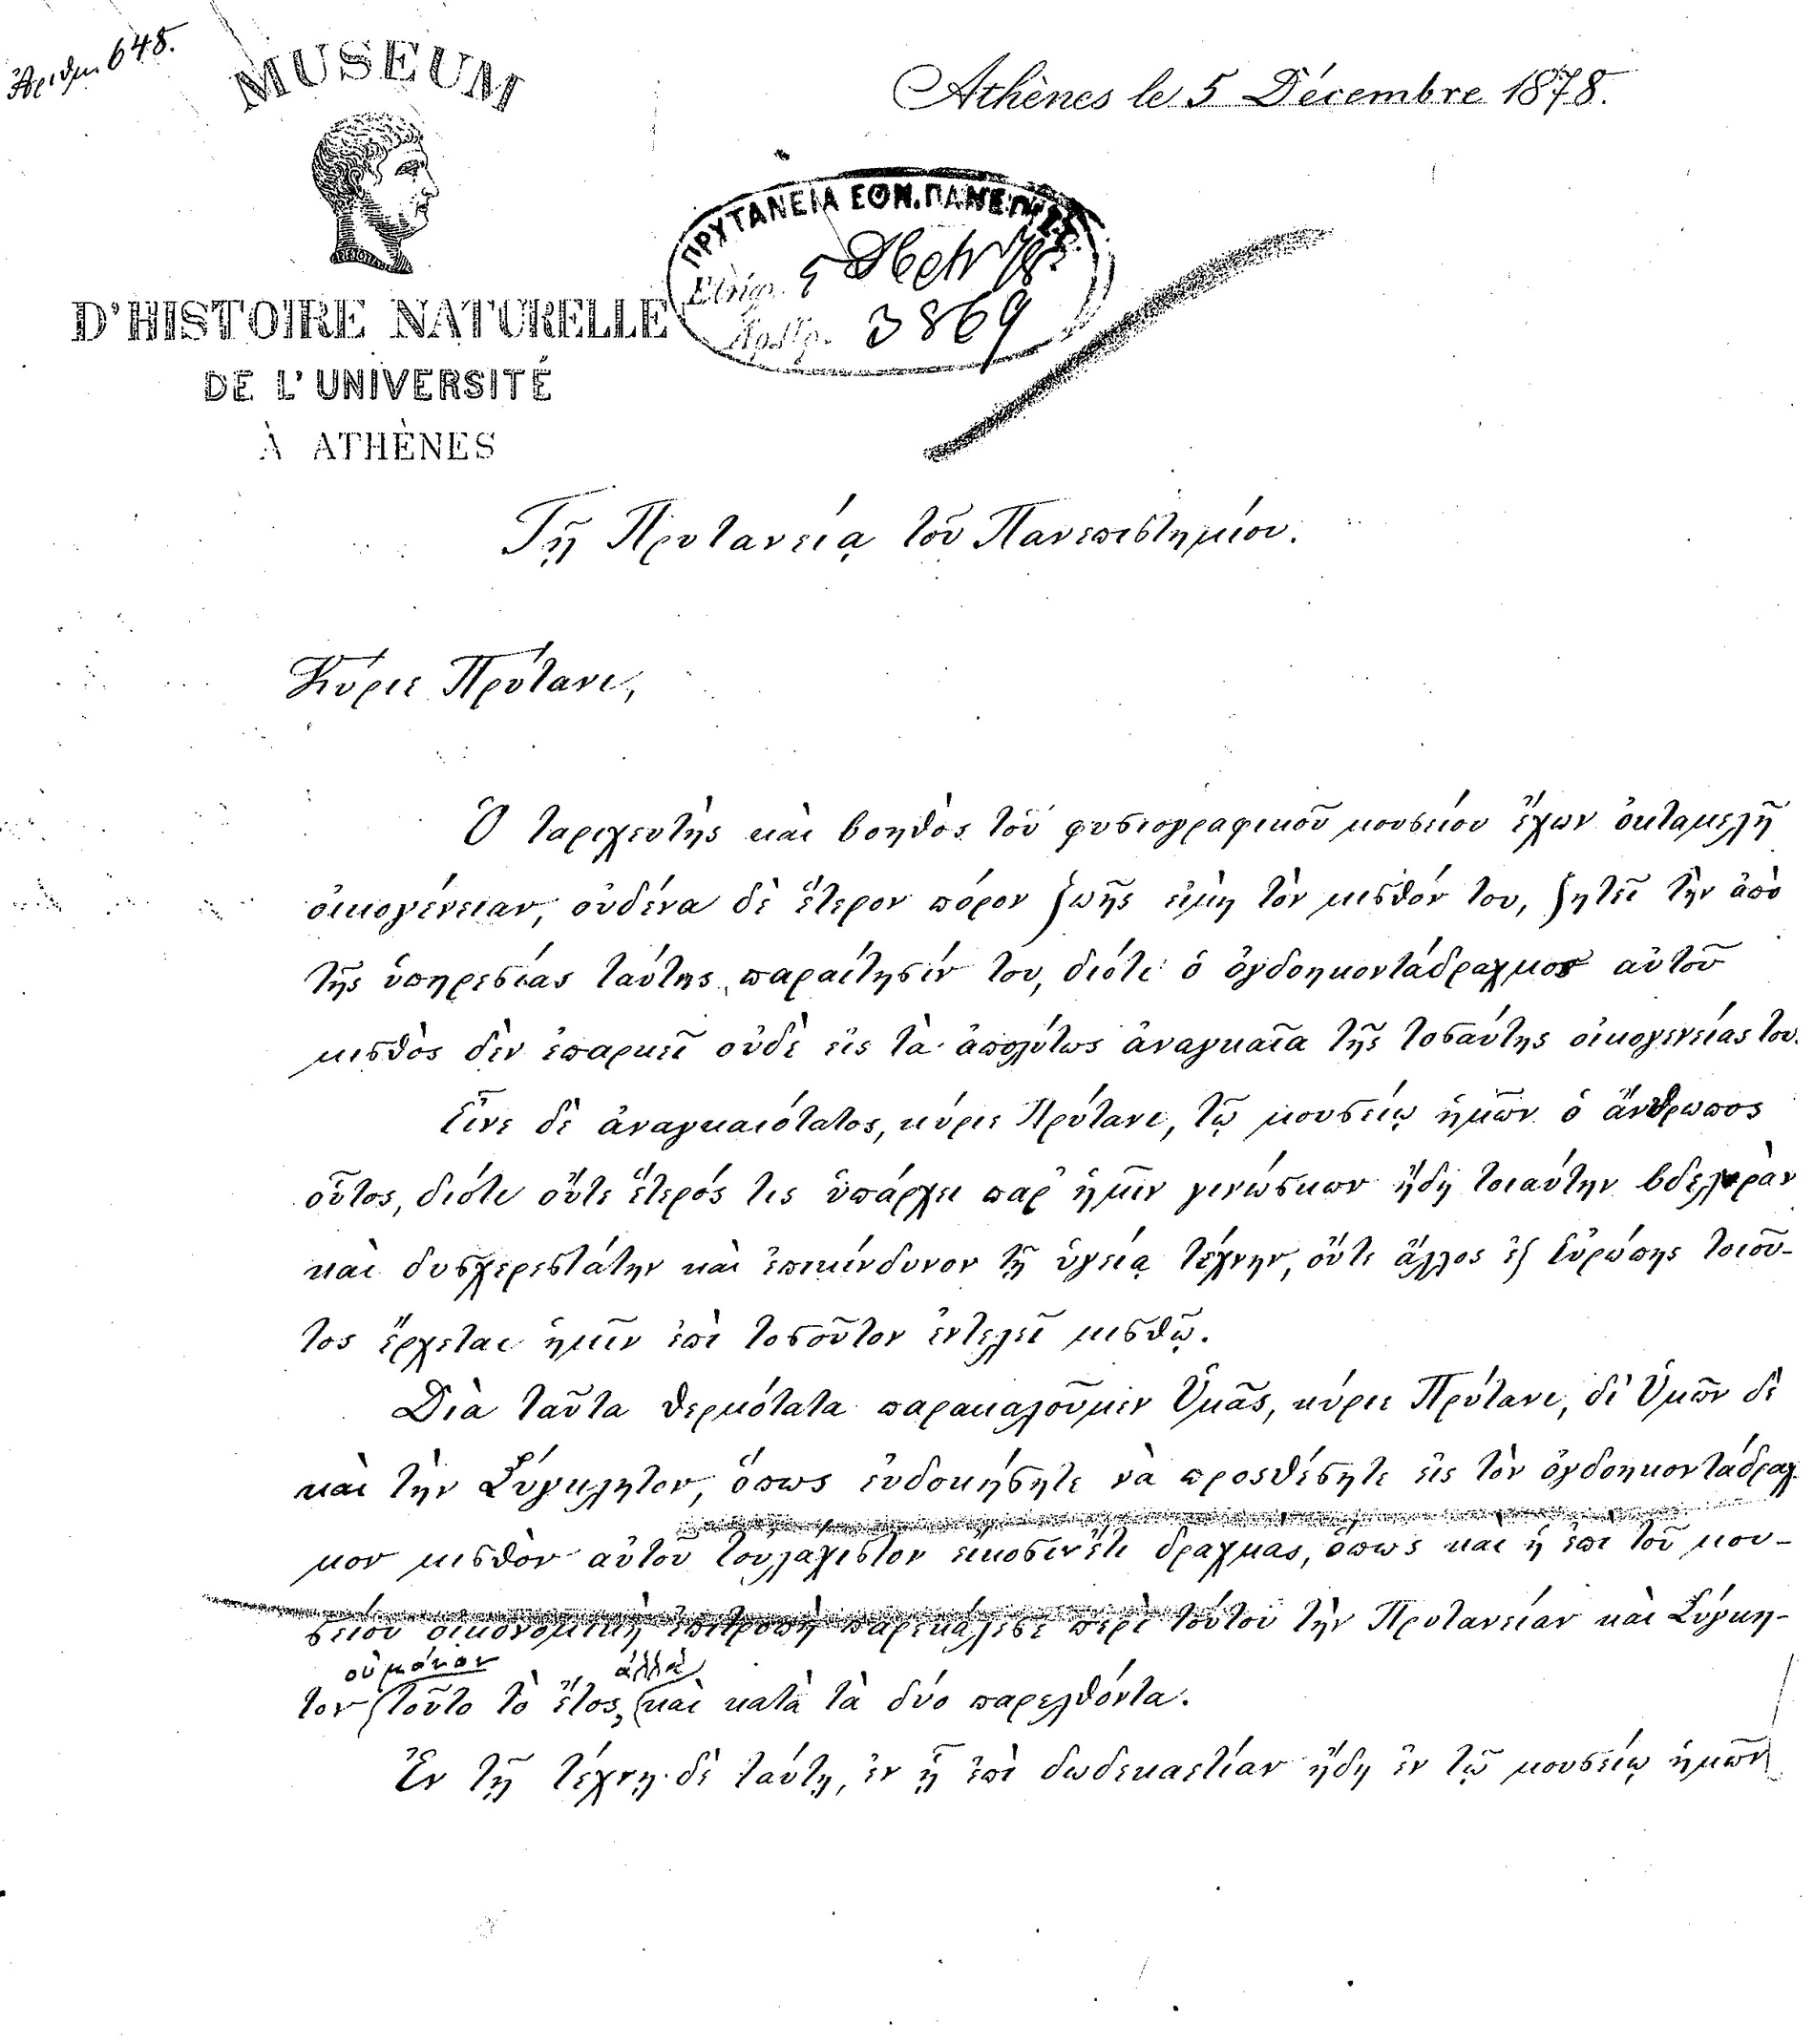 Ἀριθμ. 648.
MUSEUM
D'HISTOIRE NATURELLE
DE L'UNIVERSITÉ
À ATHÈNES
Athènes le 5 Décembre 1878.
ΠΡΥΤΑΝΕΙΑ ΕΘΝ. ΠΑΝΕΠΙΣΤ.
5 78
3869
Τῇ Πρυτανείᾳ τοῦ Πανεπιστημίου.
Κύριε Πρύτανι,
Ὁ ταριχευτὴς καὶ βοηθὸς τοῦ φυσιογραφικοῦ μουσείου ἔχων ὀκταμελῆ
οἰκογένειαν, οὐδένα δὲ ἕτερον πόρον ζωῆς εἰμὴ τὸν μισθόν του, ζητεῖ τὴν ἀπὸ
τῆς ὑπηρεσίας ταύτης παραίτησίν του, διότι ὁ ὀγδοηκοντάδραχμος αὐτοῦ
μισθὸς δὲν ἐπαρκεῖ οὐδὲ εἰς τὰ ἀπολύτως ἀναγκαῖα τῆς τοσαύτης οἰκογενείας του.
Εἶνε δὲ ἀναγκαιότατος, κύριε Πρύτανι, τῷ μουσείῳ ἡμῶν ὁ ἄνθρωπος
οὗτος, διότι οὔτε ἕτερός τις ὑπάρχει παρ' ἡμῖν γινώσκων ἤδη τοιαύτην βδελυρὰν
καὶ δυσχερεστάτην καὶ ἐπικίνδυνον τῇ ὑγείᾳ τέχνην, οὔτε ἄλλος ἐξ Εὐρώπης τοιοῦ-
τος ἔρχεται ἡμῖν ἐπὶ τοσοῦτον ἐντελεῖ μισθῷ.
Διὰ ταῦτα θερμότατα παρακαλοῦμεν Ὑμᾶς, κύριε Πρύτανι, δι' Ὑμῶν δὲ
καὶ τὴν Σύγκλητον, ὅπως εὐδοκήσητε νὰ προσθέσητε εἰς τὸν ὀγδοηκοντάδραχ-
μον μισθὸν αὐτοῦ τοὐλάχιστον εἴκοσιν ἔτι δραχμὰς, ὅπως καὶ ἡ ἐπὶ τοῦ μου-
σείου οἰκονομικὴ ἐπιτροπὴ παρεκάλεσε περὶ τούτου τὴν Πρυτανείαν καὶ Σύγκλη-
οὐ μόνον ἀλλὰ
τον τοῦτο τὸ ἔτος, καὶ κατὰ τὰ δύο παρελθόντα.
Ἐν τῇ τέχνῃ δὲ ταύτῃ, ἐν ᾗ ἐπὶ δωδεκαετίαν ἤδη ἐν τῷ μουσείῳ ἡμῶν